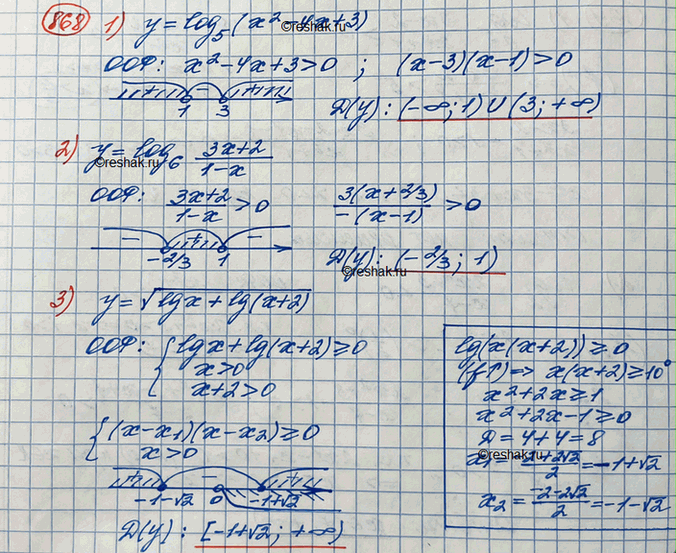 868 1) y = log₅(x² - 4x + 3)
©reshak.ru
ООФ: x² - 4x + 3 > 0 ; (x-3)(x-1) > 0
+ - +
1 3
D(y): (-∞; 1) ∪ (3; +∞)
2) y = log₆ (3x+2)/(1-x)
©reshak.ru
ООФ: (3x+2)/(1-x) > 0 3(x+2/3)/-(x-1) > 0
- + -
-2/3 1
D(y): (-2/3; 1)
©reshak.ru
3) y = √(lgx + lg(x+2))
ООФ: { lgx + lg(x+2) ≥ 0
x > 0
x+2 > 0
{ (x-x₁)(x-x₂) ≥ 0
x > 0
+ - +
-1-√2 0 -1+√2
©reshak.ru
D(y): [-1+√2; +∞)
lg(x(x+2)) ≥ 0
(f↑) => x(x+2) ≥ 10⁰
x² + 2x ≥ 1
x² + 2x - 1 ≥ 0
D = 4 + 4 = 8
x₁ = (-2+2√2)/2 = -1+√2
©reshak.ru
x₂ = (-2-2√2)/2 = -1-√2